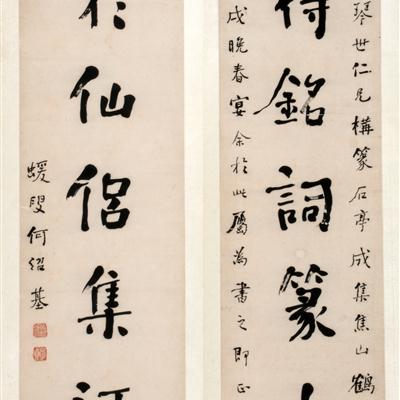 琴世仁兄構篆石亭成集焦山鶴
銘詞篆
戌晚春宴余於此屬為書之即正
仙侶集
蝯叟何紹基